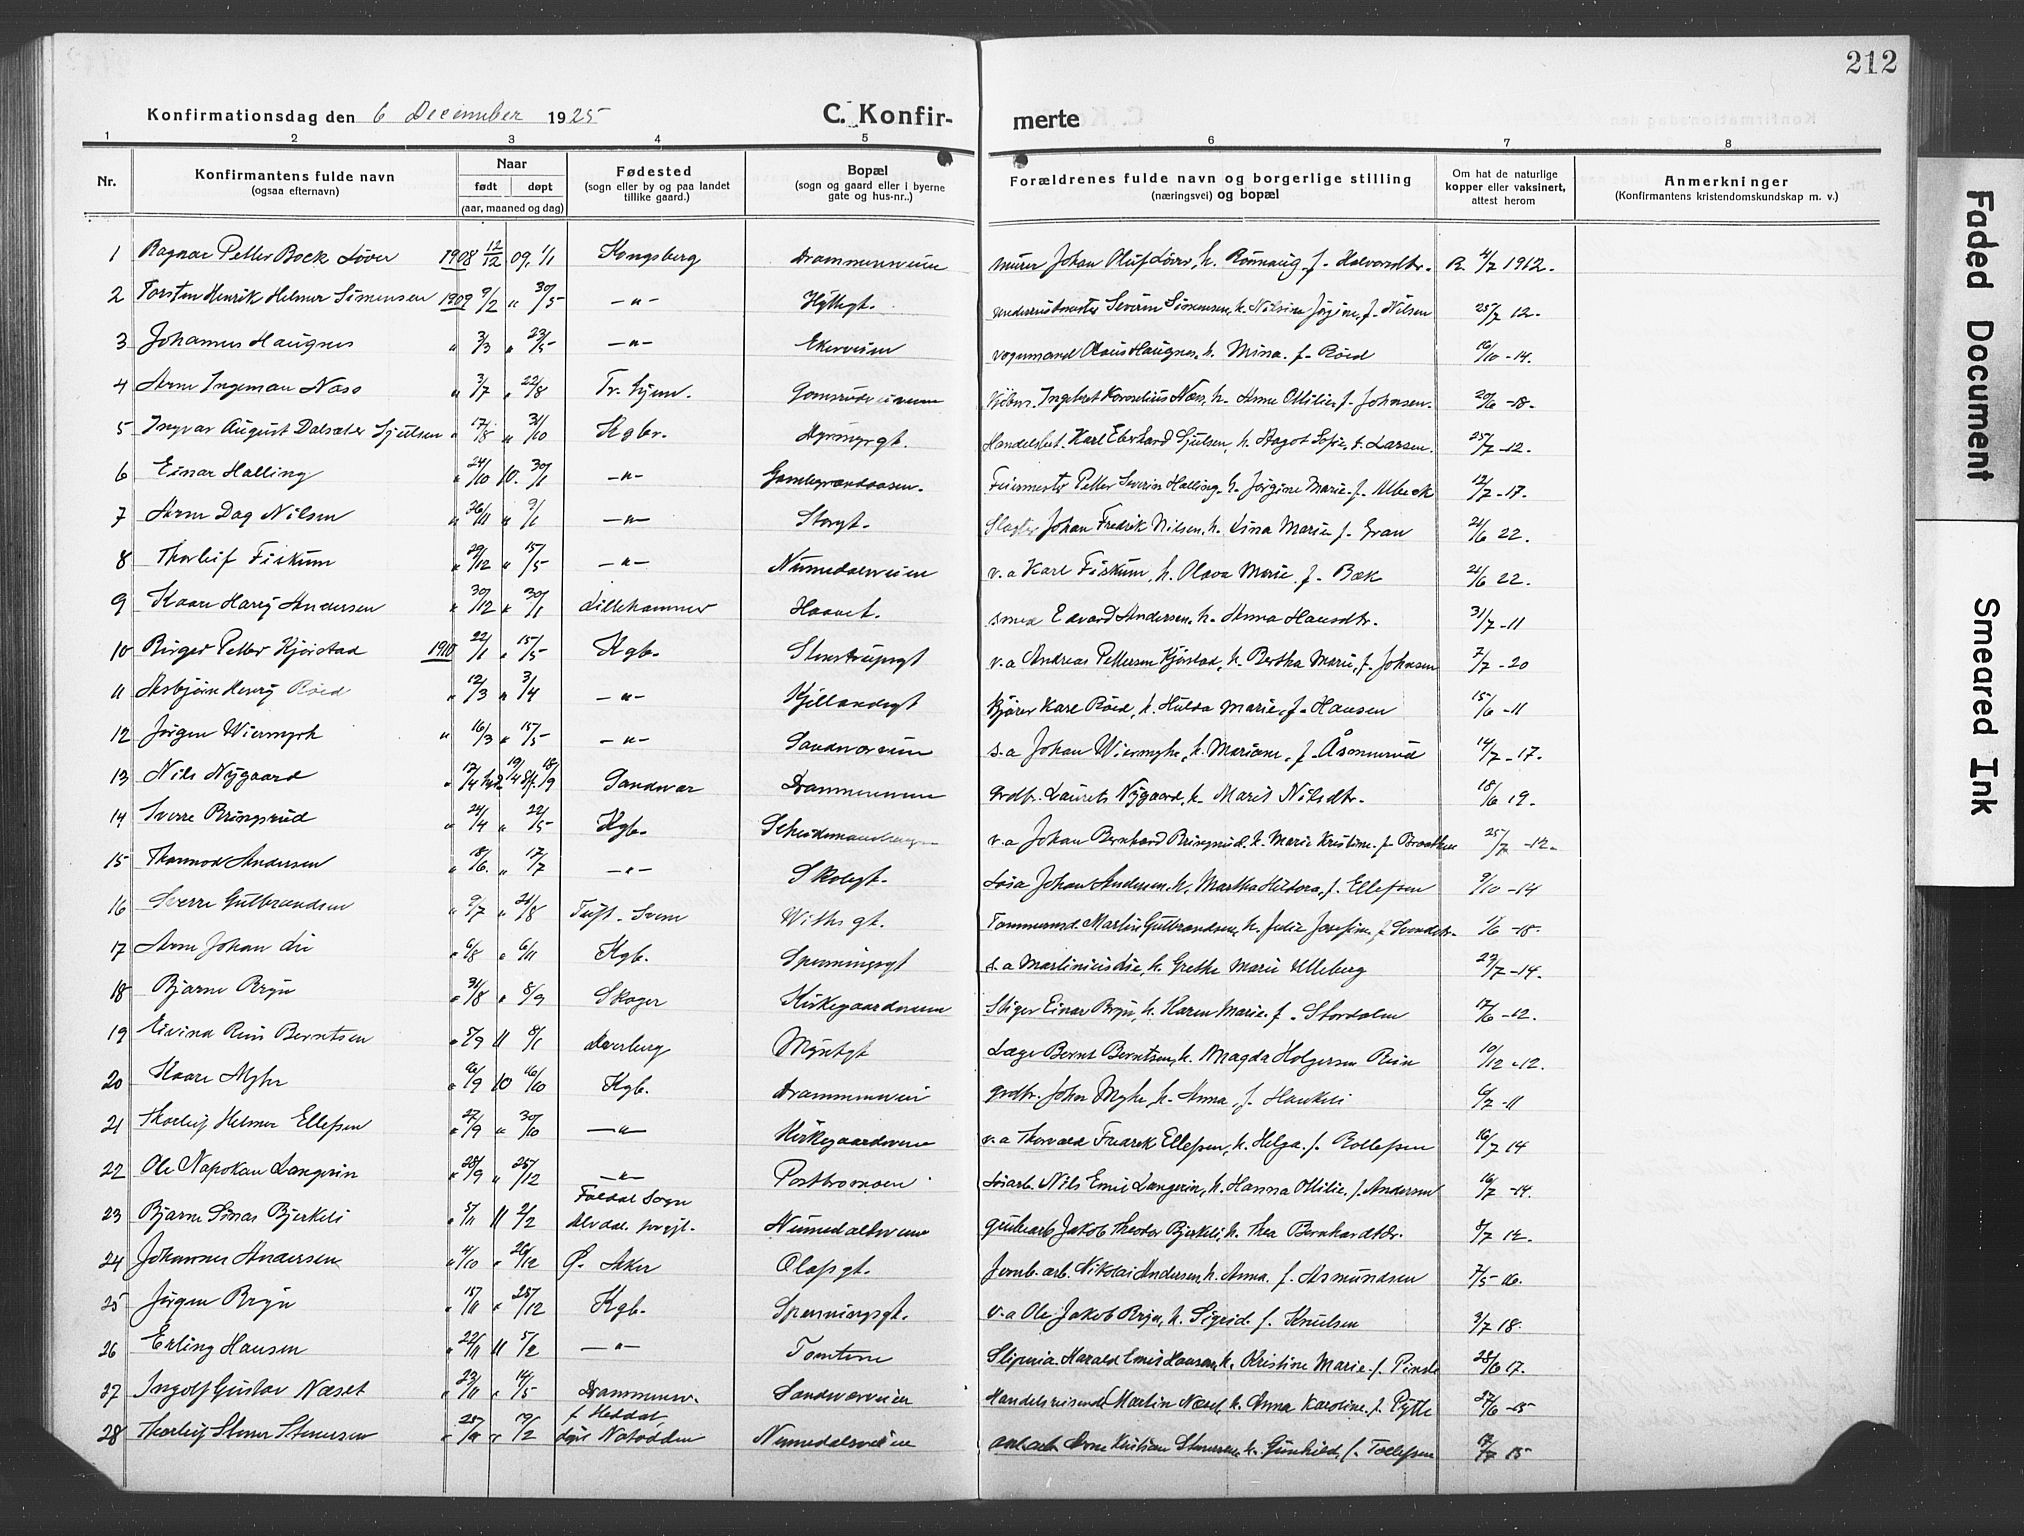 212
Konfirmationsdag den 6 December 1925 C. Konfir- merte
1 2 3 4 5 6 7 8
Nr. Konfirmantens fulde navn (ogsaa efternavn) Naar født døpt (aar, maaned og dag) Fødested (sogn eller by og paa landet tillike gaard.) Bopæl (sogn og gaard eller i byerne gate og hus-nr..) Forældrenes fulde navn og borgerlige stilling (næringsvei) og bopæl Om hat de naturlige kopper eller vaksinert, attest herom Anmerkninger (Konfirmantens kristendomskundskap m. v.)
1 Ragnar Petter Bock Løver 1908 12/12 09. 1/1 Kongsberg Drammensveien murer Johan Oluf Løver, h. Rønnaug f. Halvorsdtr. R. 4/7 1912.
2 Torsten Henrik Helmer Simensen 1909 9/2 " 30/5 -"- Hyttegt. Severin Simensen, h. Nilsine Jørgine, f. Nilsen 25/7 12.
3 Johannes Haugnes " 3/3 " 23/5 -"- Ekerveien vognmand Olaus Haugnes, h. Mina f. Røed 16/10 -14.
4 Arne Ingeman Næss " 3/7 " 22/8 Tr. hjem. Gomsrudveien Kjøbm. Ingebret Kornelius Næss, h. Anne Otilie f. Johnsen. 20/6 -18.
5 Ingvar August Dalsæter Sjulsen " 17/8 " 31/10 Kgbr. Myntgt. Handelsbet. Karl Eberhard Sjulsen, h. Dagot Sofie f. Larsen. 25/7 -12.
6 Einar Halling " 24/10 10. 30/1 -"- Gamlegrændaasen. Feiermester Petter Severin Halling, h. Jørgine Marie f. Ulbeck 12/7 -17.
7 Arne Dag Nilsen " 26/11 " 9/1 -"- Storgt. Slagter Johan Fredrik Nilsen, h. Lina Marie f. Gran 21/6 22.
8 Thorleif Fiskum " 29/12 " 15/5 -"- Numedalsveien v.a Karl Fiskum, h. Olava Marie f. Bæk 21/6 22.
9 Kaare Harry Andersen " 30/12 " 30/1 Lillehammer Haavet. smed Edvard Andersen, h. Anna Hansdtr. 31/7 -11
10 Birger Petter Kjørstad 1910 22/1 " 15/5 Kgb. Stenstrupsgt v.a Andreas Pettersen Kjørstad, h. Bertha Marie, f. Johnsen 7/7 -20
11 Asbjørn Henry Røed " 12/3 " 3/4 -"- Kjillandsgt Kjører Karl Røed, h. Hulda Marie, f. Hansen 15/6 -11
12 Jørgen Wiermyrh " 16/3 " 15/5 -"- Sandsværveien s.a Johan Wiermyhr, h. Mariane, f. Åsmunrud 14/7 -17.
13 Nils Nygaard " 17/4 hd. 19/4 Stf. 18/9 Sandsvær Drammensveien grdbr. Laurits Nygaard, h. Marit Nilsdtr. 18/6 19.
14 Sverre Bringsrud " 24/4 " 22/5 Kgb. v.a Johan Bernhard Bringsrud, h. Marie Kristine f. Braathen 25/7 -12.
15 Thormod Andersen " 18/6. " 17/7 -"- Skolegt. Løsa Johan Andersen, h. Martha Hildora, f. Ellefsen 9/10 -14
16 Sverre Gulbrandsen " 9/7 " 21/8 Tuft. Svene Withs gt. Tømmermd. Martin Gulbrandsen, h. Julie Josefine f. Svendsdtr. 1/6 -15.
17 Arne Johan Lie " 6/8 " 6/11 Kgb. Spenningsgt s.a Martinius Lie, h. Grethe Marie Ulleberg 23/7 -14.
18 Bjarne Bryn " 31/8 " 8/9 Skoger Kirkegaardsveien Stiger Einar Bryn, h. Karen Marie f. Stordalen 17/6 -12.
19 Eivind Rein Berntsen " 5/9 11 8/1 Myntgt Læge Bernt Berntsen, h. Magda Holgersen Rein 10/12 -12.
20 Kaare Myhr " 9/9 10 16/10 Kgb. Drammensveien grdbr. Johan Myhr, h. Anna f. Haukeli 6/7 -11
21 Thorleif Helmer Ellefsen " 27/9 " 30/10 -"- Kirkegaardsveien v.a Thorvald Fredrik Ellefsen, h. Helga f. Rollefsen 16/7 14
22 Ole Napolean Langerin " 28/9 " 25/12 -"- Løsarb. Nils Emil Langerin, h. Hanna Otilie, f. Andersen 16/7 -14.
23 Bjarne Sinas Bjerkeli " 5/11 11 2/2 Foldal Sogn Alvdal prgjl. Numedalsveien grubearb Jakob Theodor Bjerkeli, h. Thea Bernhardtdr. 8/7 12.
24 Johannes Andersen " 4/10 " 26/12 Ø. Aker Olafsgt. Jernb. arb. Nikolai Andersen, h. Anna f. Asmundsen 7/5 -16.
25 Jørgen Bryn " 15/11 " 25/12 Kgb. Spenningsgt. v.a Ole Jakob Bryn, h. Sigrid f. Knutsen 3/7 18.
26 Erling Hansen " 22/11 11 5/2 -"- Tomtene Harald Emil Hansen, h. Kristine Marie f. Pinsle 28/6 17.
27 Ingolf Gustav Næset " 23/11 " 14/5 Drammensv. Sandsværveien Handelsreisende Martin Næset, h. Anna Karoline f. Pytte 27/6 -15
28 Thorleif Stener Stenersen " 25/11 " 19/2 f. Heddal, døpt Notodden Numedalsveien Arne Kristian Stenersen, h. Gunhild, f. Tollefsen 17/7 15
Faded Document
Smeared Ink